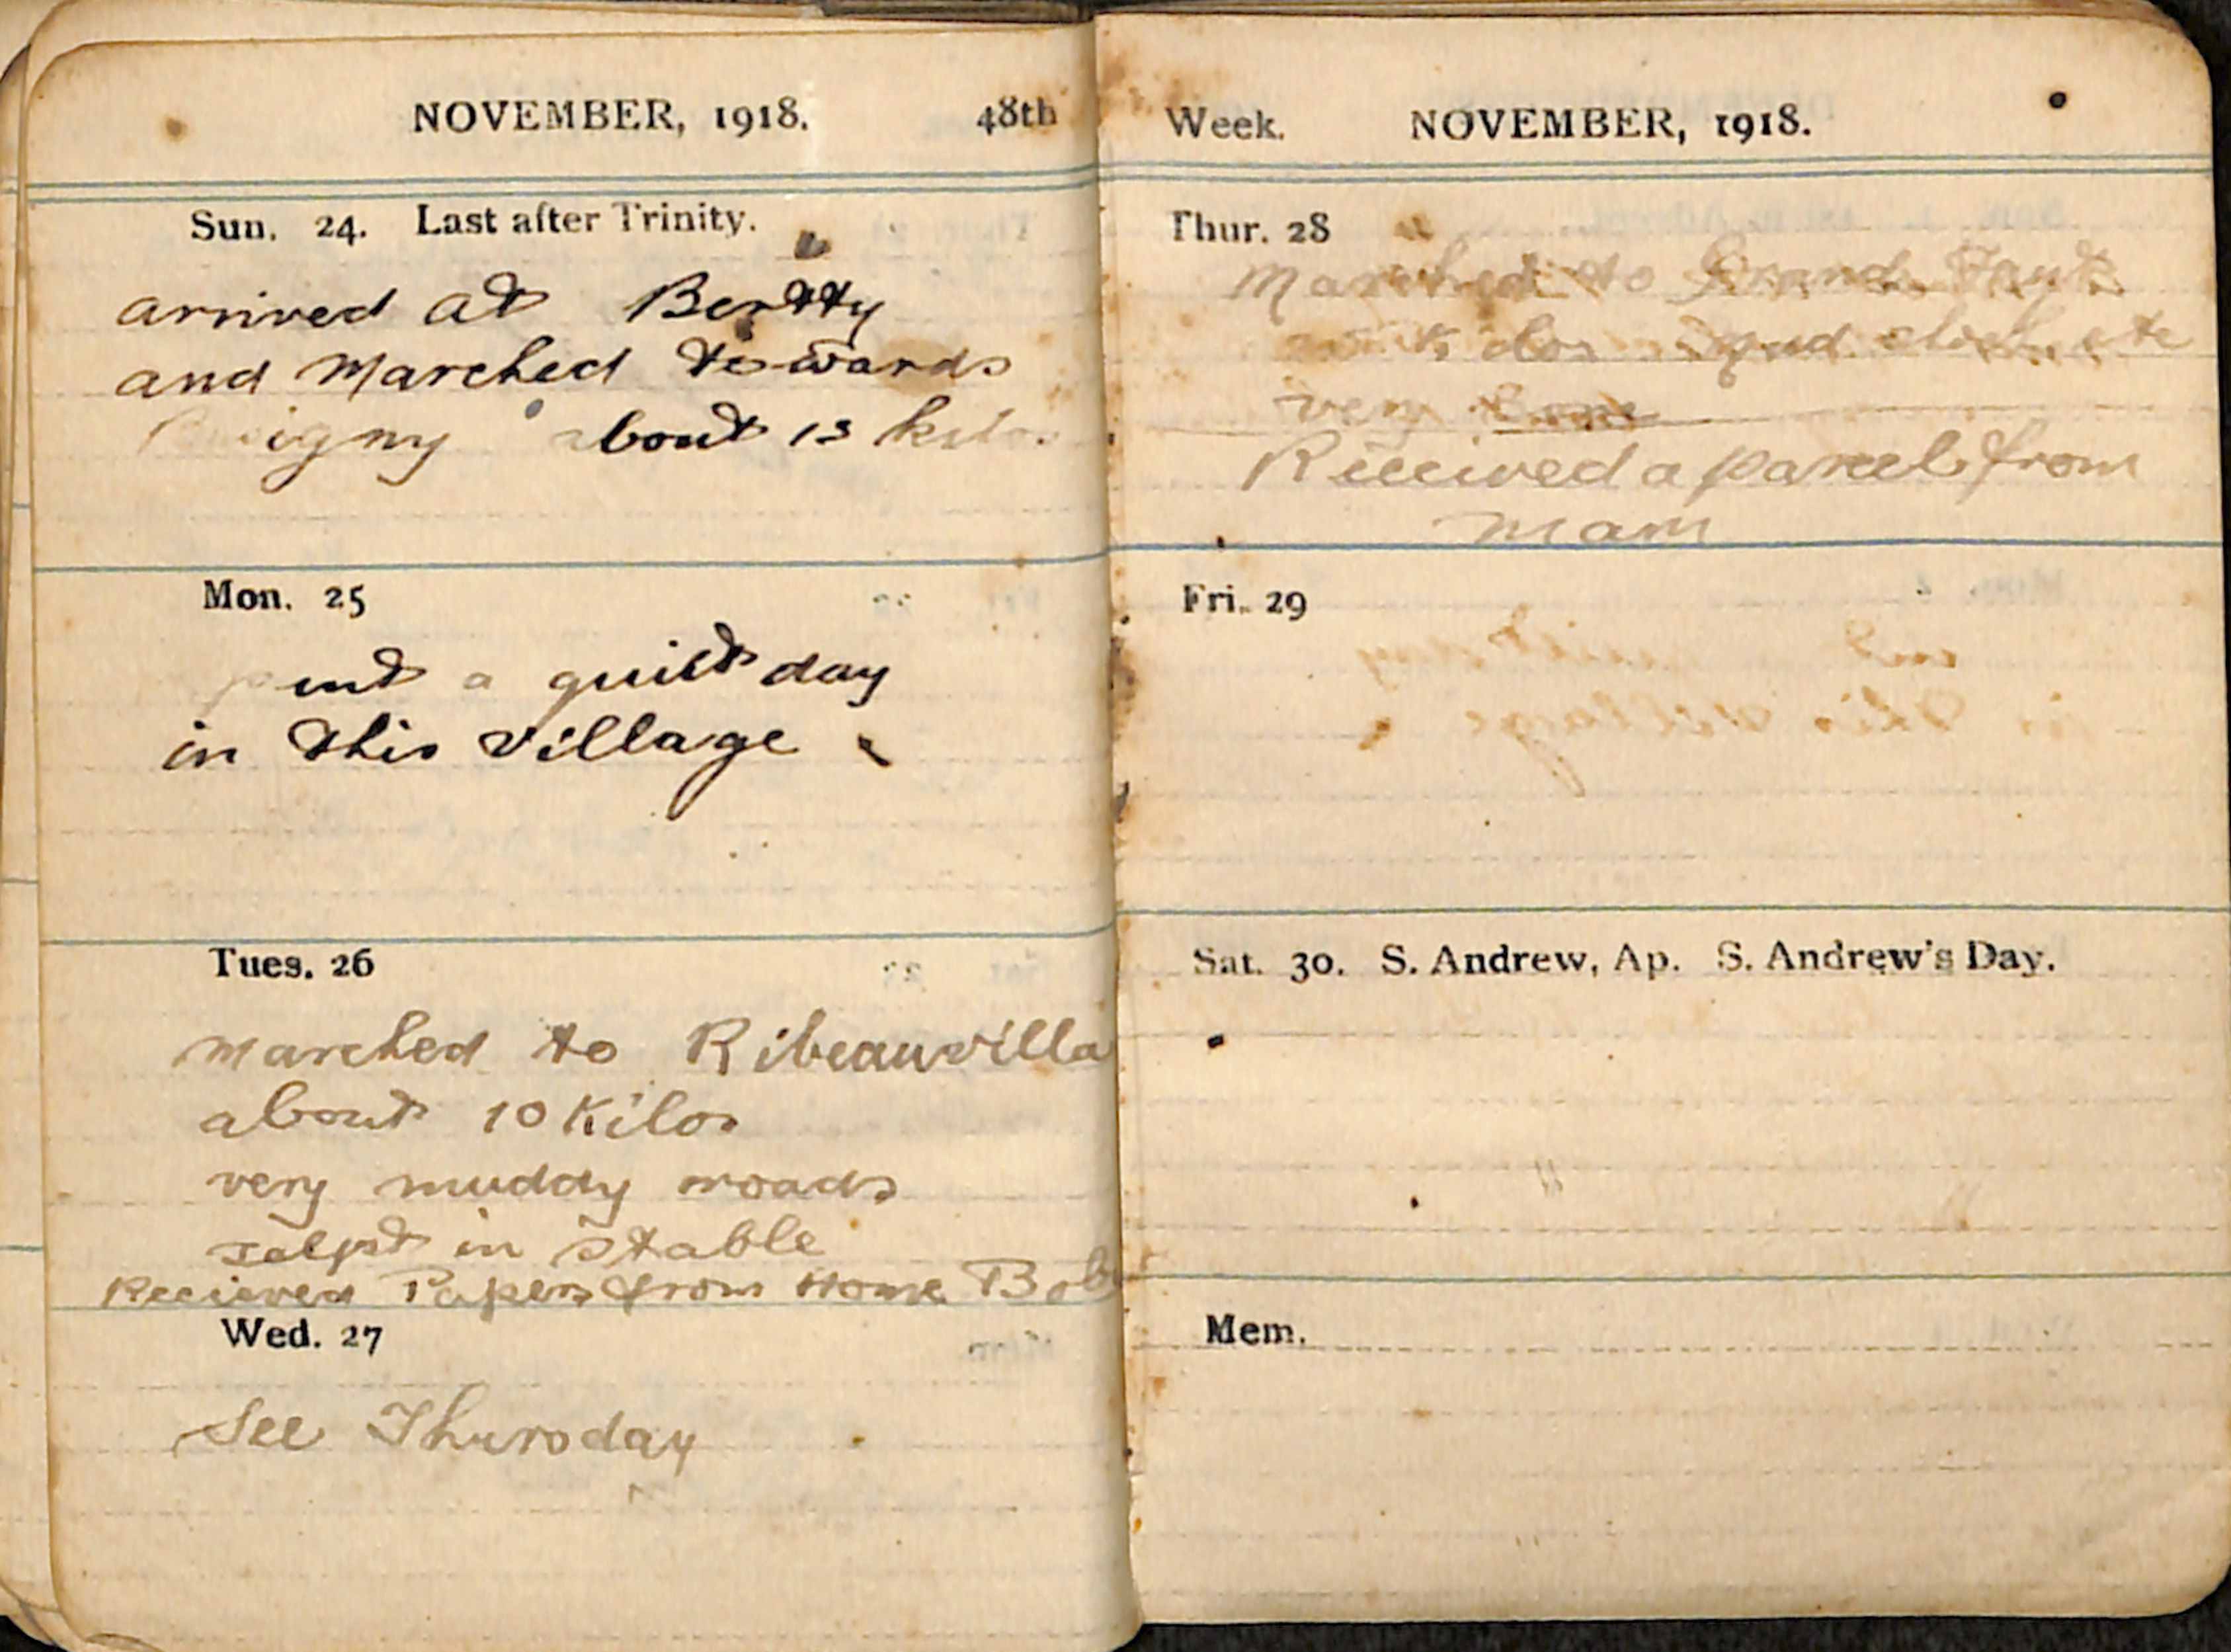 NOVEMBER, 1918. 48th
Sun. 24. Last after Trinity.
arrived at Bertty
and Marched towards
igny about 13 kilos
Mon. 25
pent a quilt day
in this village
Tues. 26
Marched to Ribeauvilla
about 10 Kilos
very muddy roads
Selpt in stable
Recieved Papers from Home Bob
Wed. 27
See Thursday
Week. NOVEMBER, 1918.
Thur. 28
Marched to Grand
Kilos mud
very
Received a parcel from
Mam
Fri. 29
Sat. 30. S. Andrew, Ap. S. Andrew's Day.
Mem.